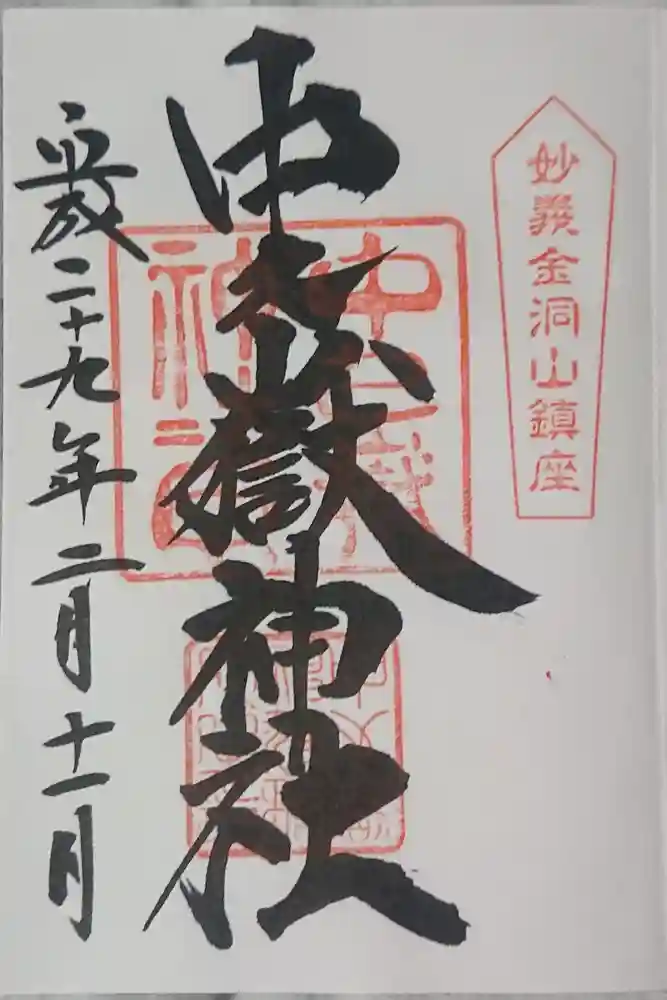 妙義金洞山鎮座
中之嶽神社
中之嶽
神社
平成二十九年二月十一日